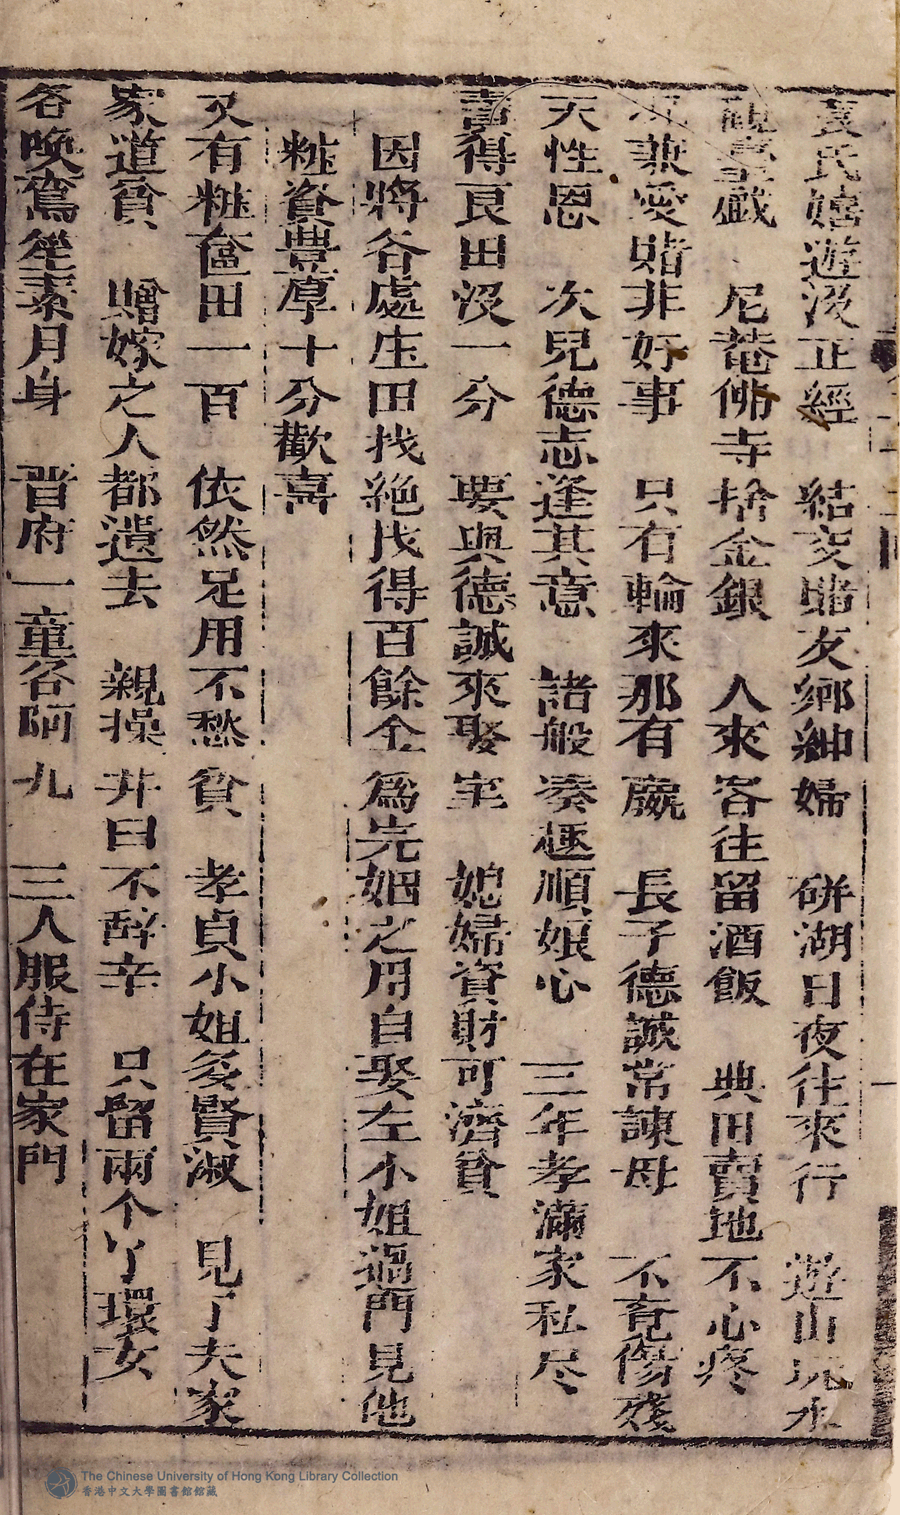 袁氏嬉遊没正經　結交賭友鄉紳婦　硑湖日夜往來行　遊山玩水
觀臺戯　尼菴佛寺捨金銀　人來客往留酒飯　典田賣地不心疼
兼愛賭非好事　只有輪來那有嬴　長子德誠常諫母　不竟傷殘
天性恩　次兒德志逢其意　諸般凑趣順娘心　三年孝滿家私尽
賣得良田没一分　要與德誠來娶室　媳婦資財可濟貧
因將各處庄田找絶找得百餘金為完姻之用自娶左小姐過門見他
粧資豊厚十分歡喜
又有粧奩田一百　依然足用不愁貧　孝貞小姐多賢淑　見了夫家
家道貧　贈嫁之人都遣去　親操井臼不辞辛　只留兩个丫環女
各喚鴛笙素月身　晋府一童名阿九　三人服侍在家門
The Chinese University of Hong Kong Library Collection
香港中文大學圖書館館藏